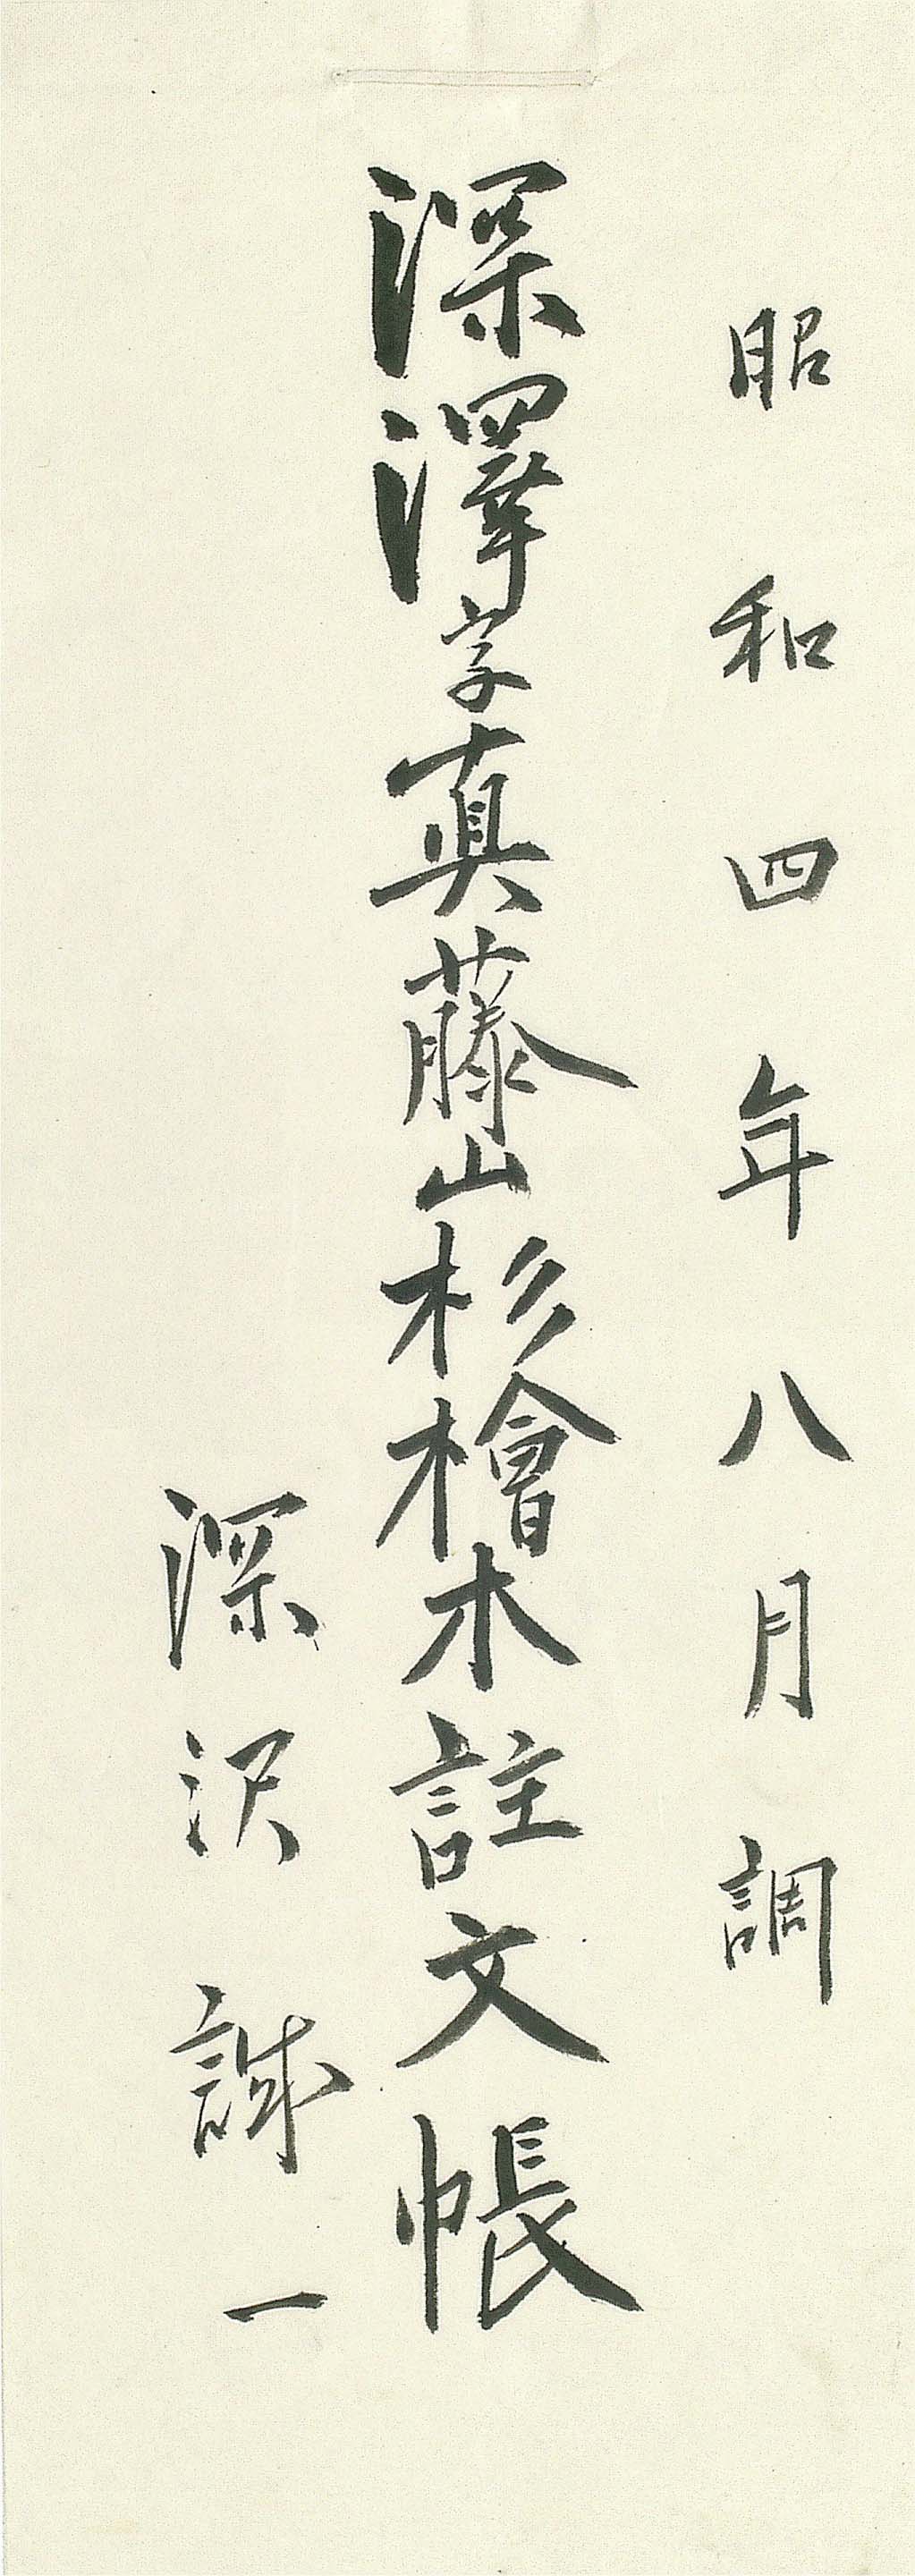 昭和四年八月調
深澤字真藤山杉檜木註文帳
深沢誠一